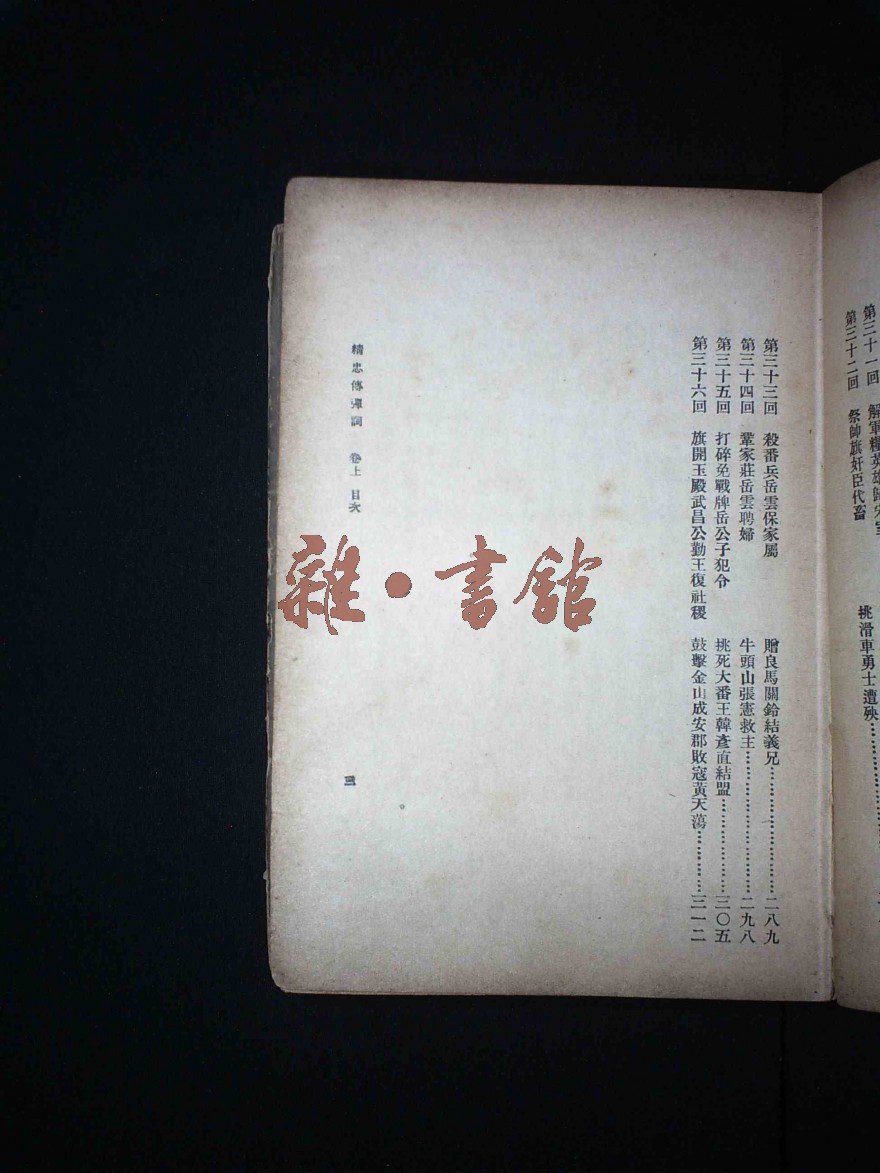 第三十一回　解軍糧英雄歸宋室
第三十二回　祭帥旗奸臣代畜　挑滑車勇士遭殃…………
第三十三回　殺番兵岳雲保家屬　贈良馬關鈴結義兄…………二八九
第三十四回　鞏家莊岳雲聘婦　牛頭山張憲救主…………二九八
第三十五回　打碎免戰牌岳公子犯令　挑死大番王韓彥直結盟…………三〇五
第三十六回　旗開玉殿武昌公勤王復社稷　鼓擊金山成安郡敗寇黃天蕩…………三一二
精忠傳彈詞　卷上　目次
三
雜·書館